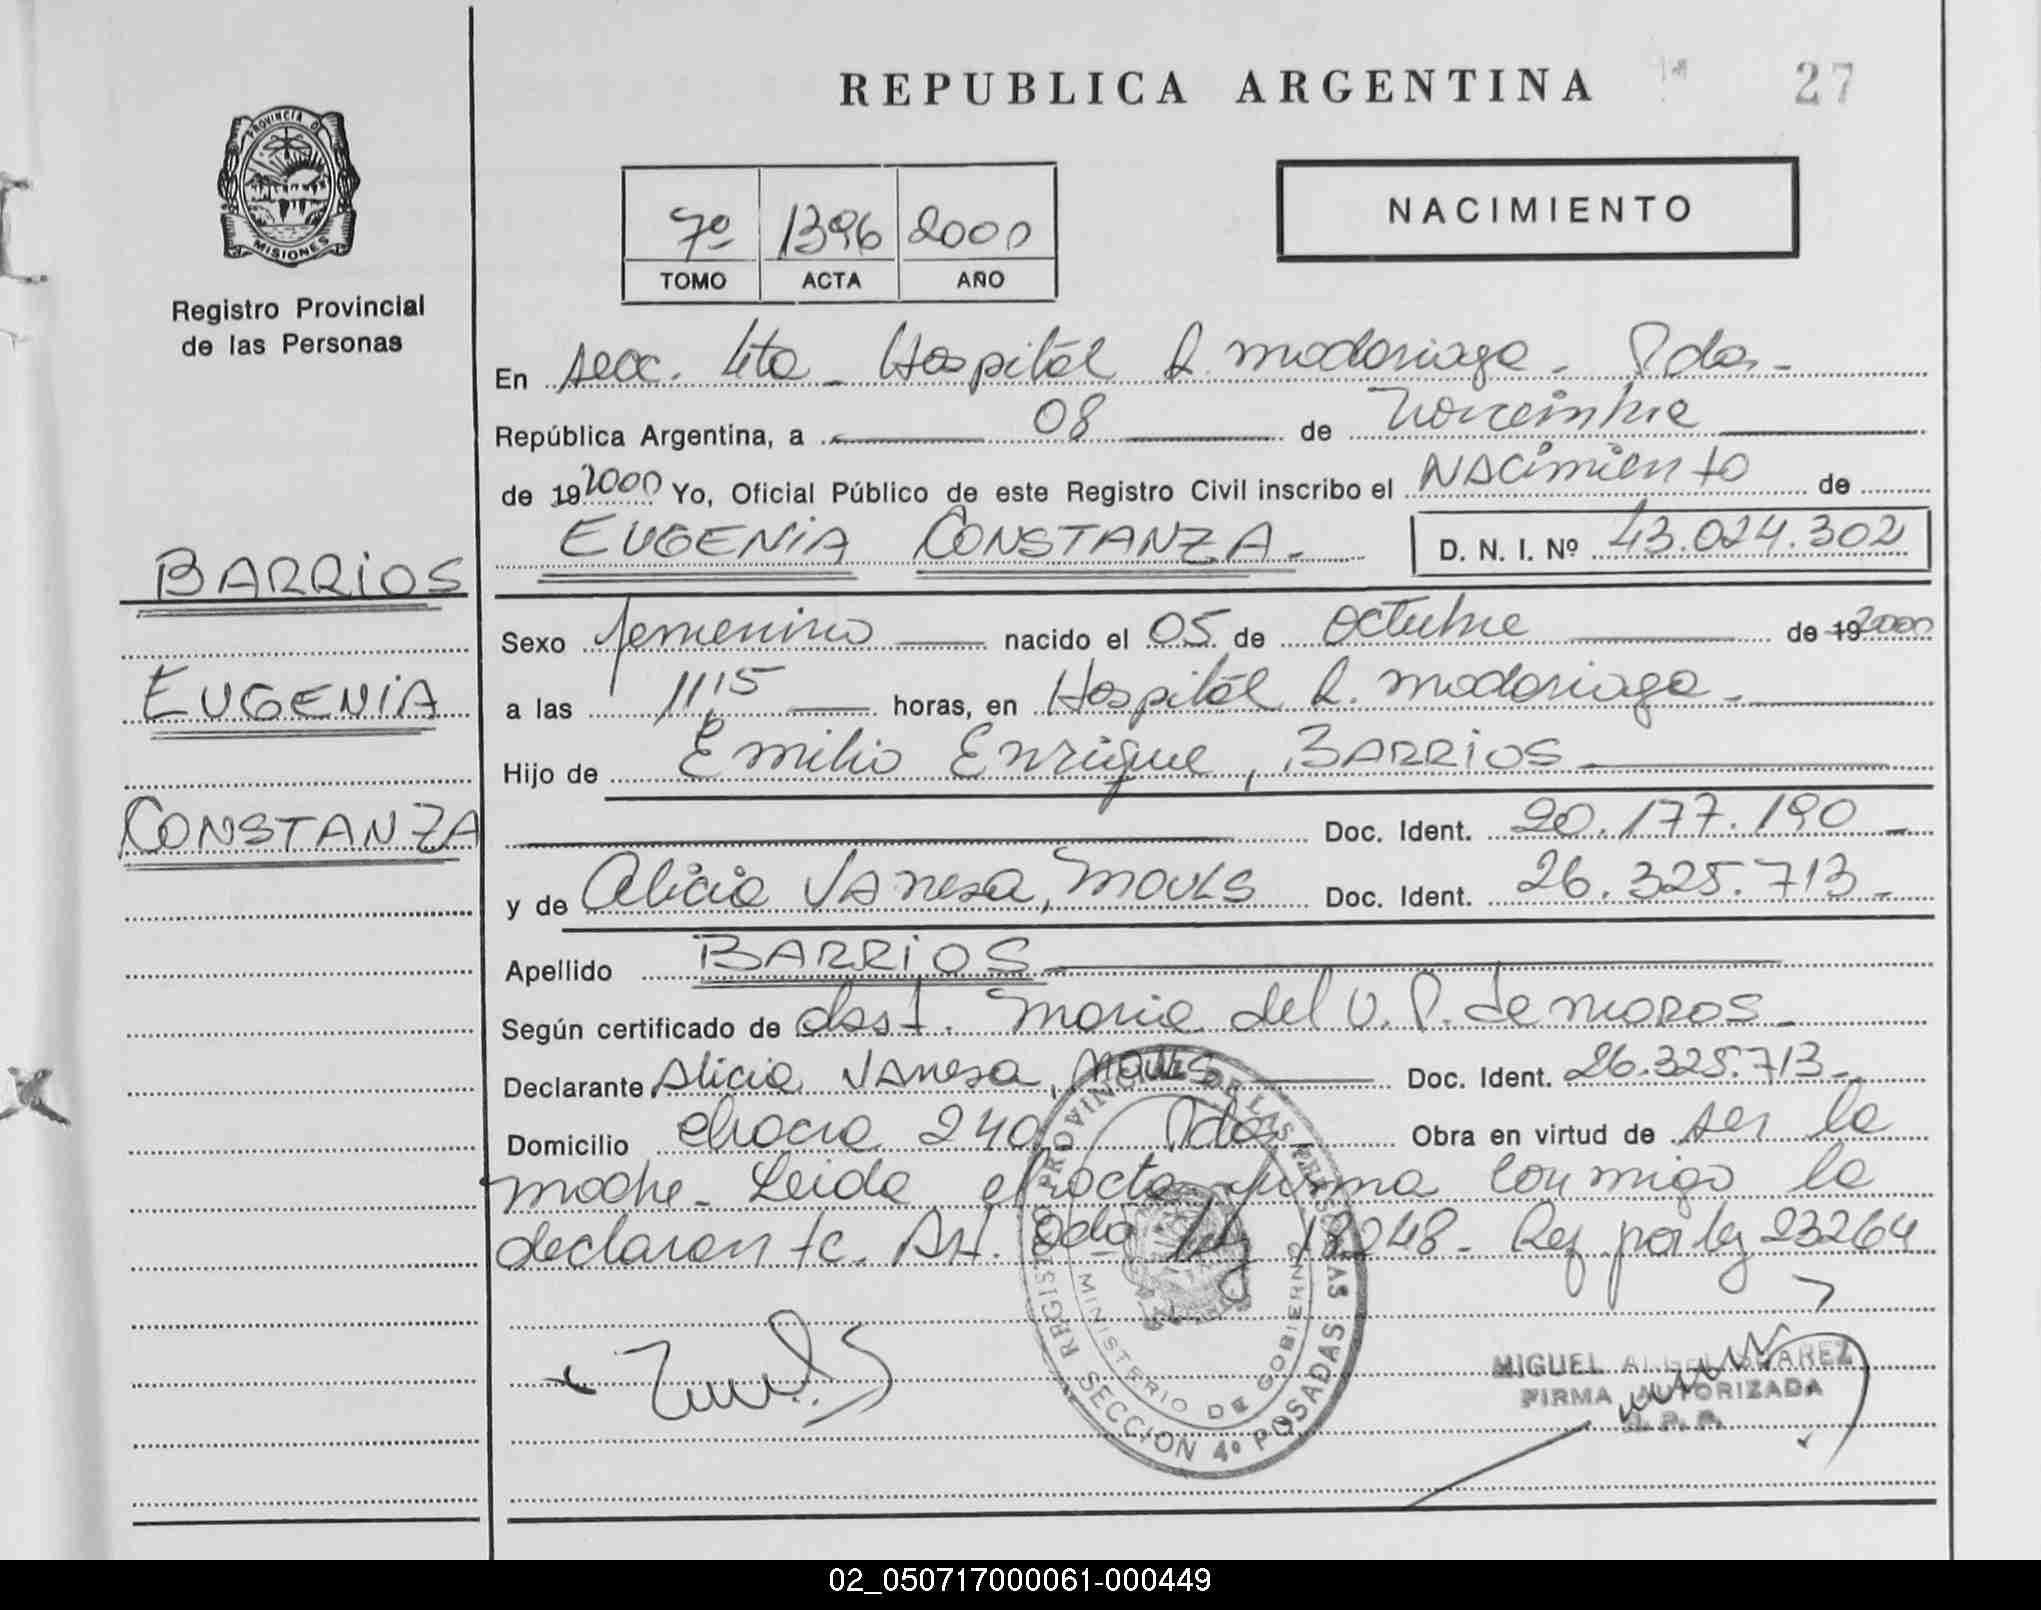 REPUBLICA ARGENTINA
27
PROVINCIA D
MISIONES
Registro Provincial
de las Personas
7º 1396 2000
TOMO ACTA AÑO
NACIMIENTO
En secc. 4ta - Hospital R. Madariaga - Pdas -
República Argentina, a 08 de Noviembre
de 19 2000 Yo, Oficial Público de este Registro Civil inscribo el NACimiento de
EUGENIA CONSTANZA - D. N. I. Nº 43.024.302
BARRIOS
EUGENIA
CONSTANZA
Sexo femenino nacido el 05 de octubre de 19 2000
a las 11,15 horas, en Hospital R. Madariaga -
Hijo de Emilio Enrique, BARRIOS
Doc. Ident. 20.177.190 -
y de Alicia VANesa, Doc. Ident. 26.325.713 -
Apellido BARRIOS
Según certificado de obst. Maria del V. P. de
Declarante Alicia VANesa, Doc. Ident. 26.325.713 -
Domicilio 240 Pdas - Obra en virtud de ser la
madre - Leida el acta firma conmigo la
declarante. Art. 2do ley 18248 - Ref por ley 23264
REGISTRO PROVINCIAL DE LAS PERSONAS
MINISTERIO DE GOBIERNO
SECCION 4º POSADAS
MIGUEL
FIRMA AUTORIZADA
02_050717000061-000449